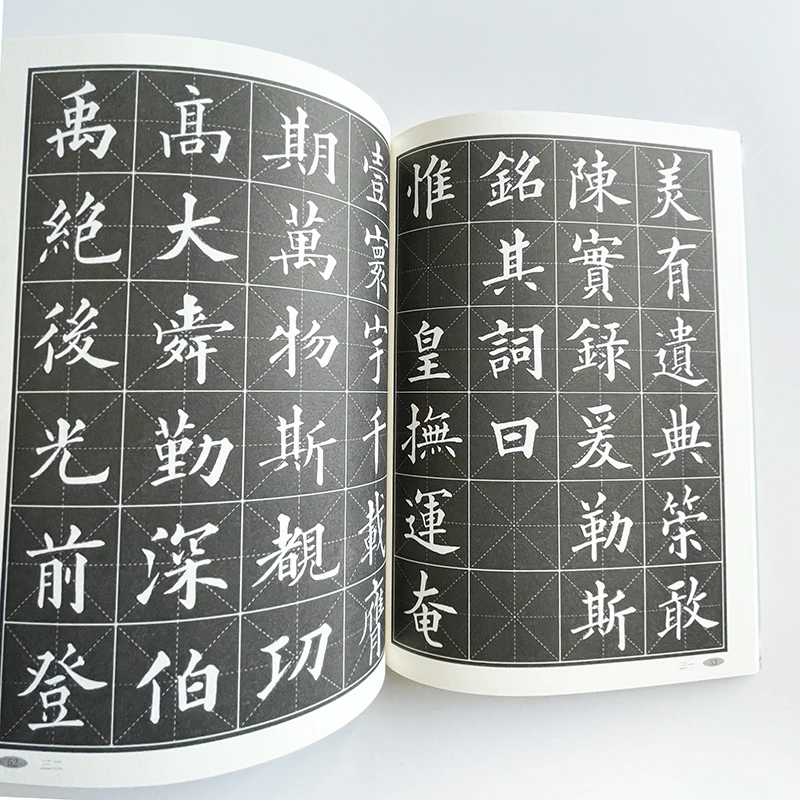 美有遺典筞敢
陳實録爰勒斯
銘其詞曰
惟 皇撫運奄
壹寰宇千載膺
期萬物斯覩功
髙大舜勤深伯
禹絶後光前登
52